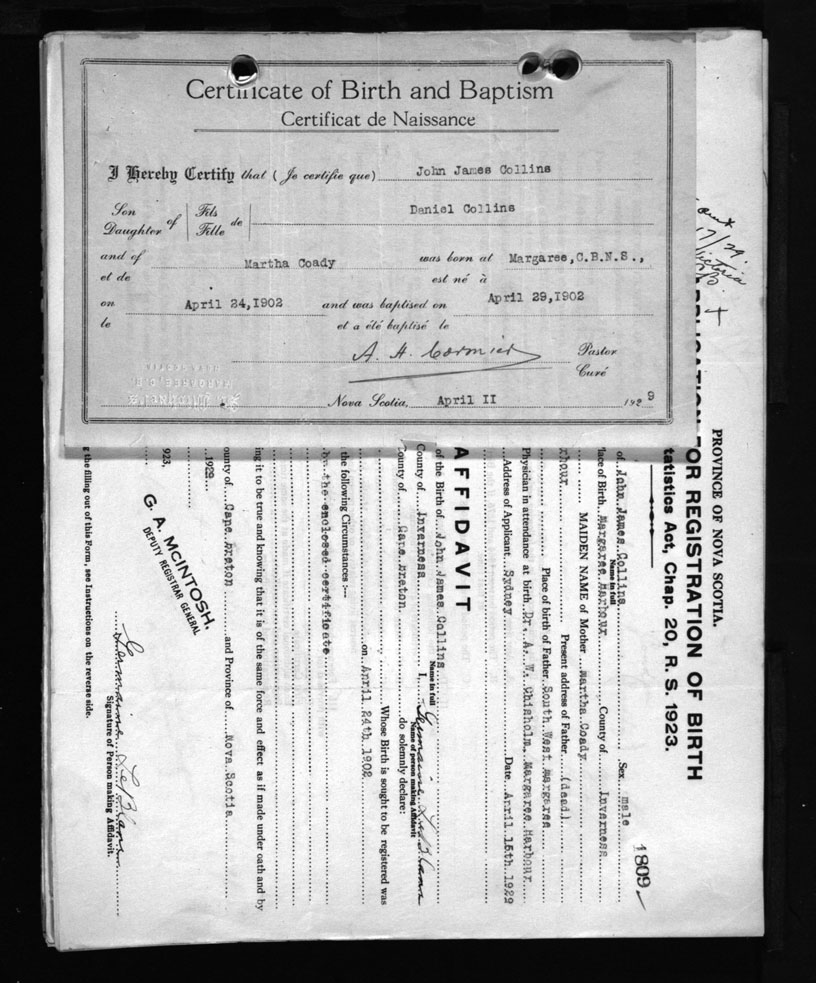 Certificate of Birth and Baptism
Certificat de Naissance
I Hereby Certify that (Je certifie que) John James Collins
Son Daughter of Fils Fille de Daniel Collins
and of Martha Coady was born at Margaree, C.B.N.S.,
et de est né à
on April 24, 1902 and was baptised on April 29, 1902
le et a été baptisé le
A. H. Cormier Pastor
Curé
Nova Scotia, April II 1929
PROVINCE OF NOVA SCOTIA.
FOR REGISTRATION OF BIRTH
tatistics Act, Chap. 20, R. S. 1923.
1809
of John James Collins Sex male
Name in full
lace of Birth Margaree Harbour County of Inverness
MAIDEN NAME of Mother Martha Coady
rbour Present address of Father (dead)
Place of birth of Father South West Margaree
Physician in attendance at birth Dr. A. W. Chisholm, Margaree Harbour
Address of Applicant Sydney Date April 15th 1929
AFFIDAVIT
of the Birth of John James Collins
Name in full
County of Inverness I, Germaine LeBlanc
Name of person making Affidavit
County of Cape Breton do solemnly declare:
Whose Birth is sought to be registered was
on April 24th 1902
the following Circumstances :—
by the enclosed certificate
ing it to be true and knowing that it is of the same force and effect as if made under oath and by
ounty of Cape Breton and Province of Nova Scotia
1929
923,
G. A. McINTOSH.
DEPUTY REGISTRAR GENERAL
Germaine LeBlanc
Signature of Person making Affidavit.
g the filling out of this Form, see Instructions on the reverse side.